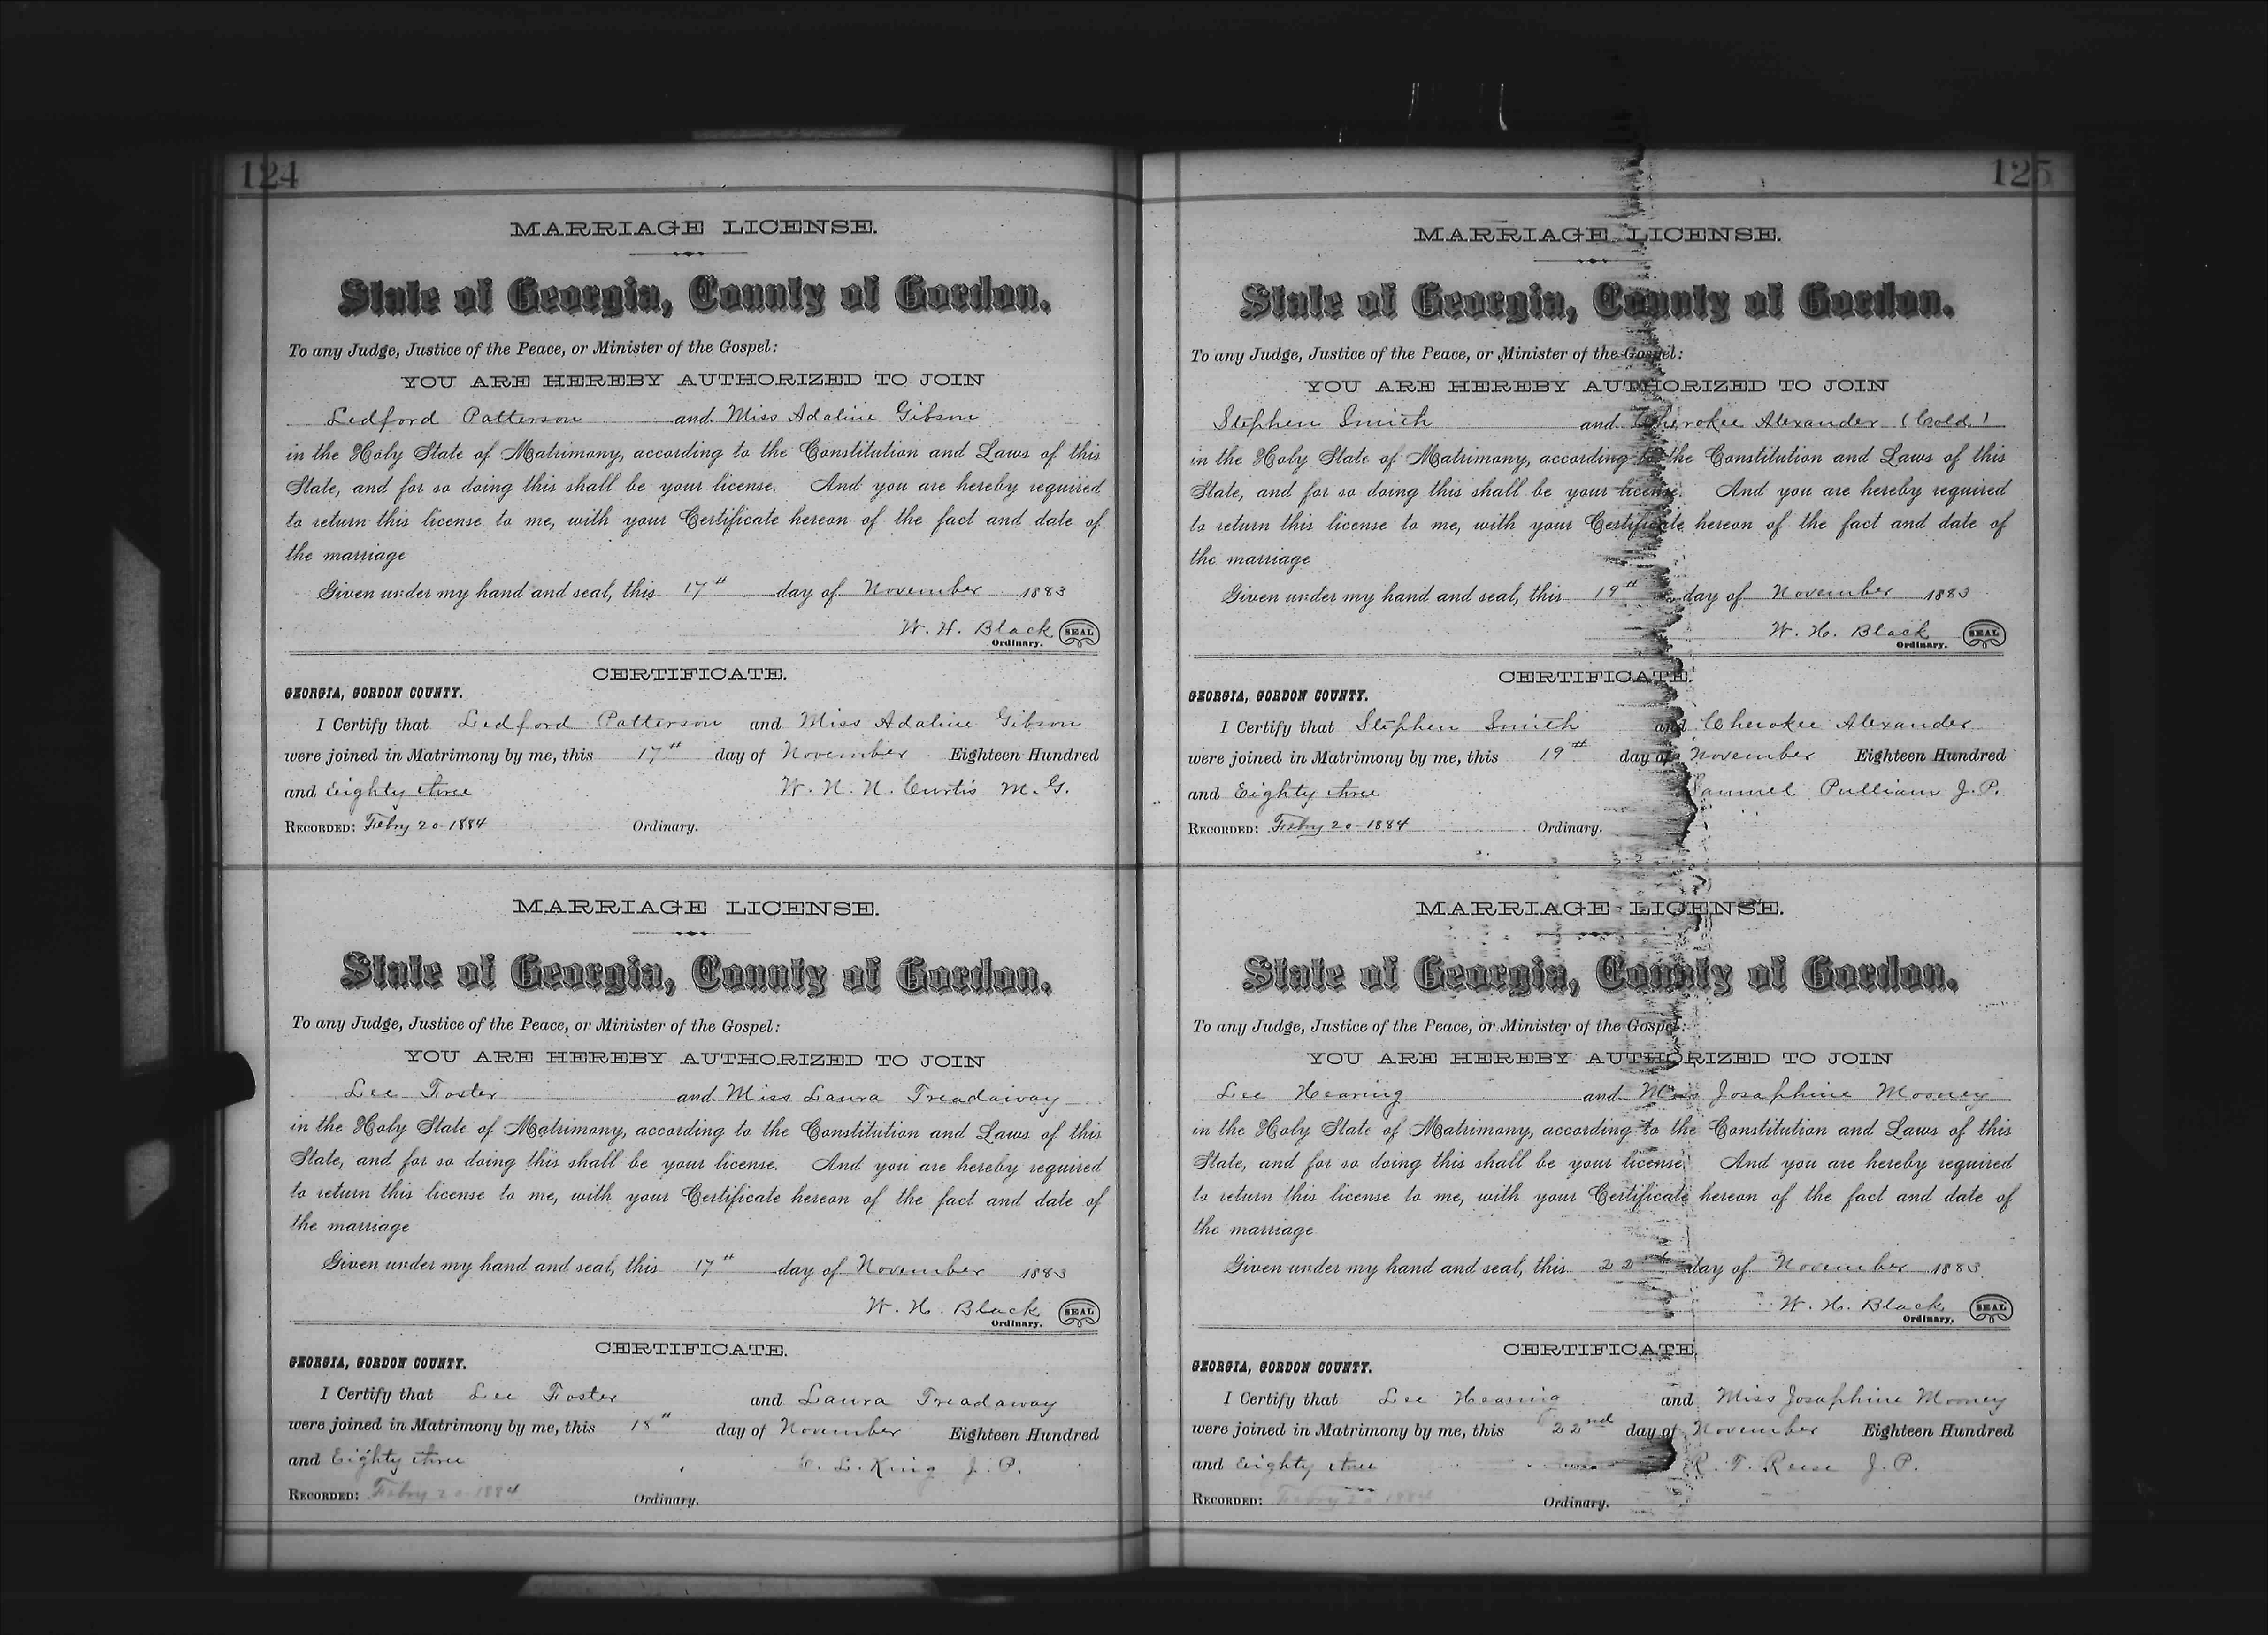 124
MARRIAGE LICENSE.
State of Georgia, County of Gordon.
To any Judge, Justice of the Peace, or Minister of the Gospel:
YOU ARE HEREBY AUTHORIZED TO JOIN
Ledford Patterson and Miss Adaline Gibson
in the Holy State of Matrimony, according to the Constitution and Laws of this
State, and for so doing this shall be your license. And you are hereby required
to return this license to me, with your Certificate hereon of the fact and date of
the marriage
Given under my hand and seal, this 17th day of November 1883
W. H. Black SEAL
Ordinary.
CERTIFICATE.
GEORGIA, GORDON COUNTY.
I Certify that Ledford Patterson and Miss Adaline Gibson
were joined in Matrimony by me, this 17th day of November Eighteen Hundred
and Eighty three W. N. N. Curtis M. G.
RECORDED: Febry 20-1884 Ordinary.
MARRIAGE LICENSE.
State of Georgia, County of Gordon.
To any Judge, Justice of the Peace, or Minister of the Gospel:
YOU ARE HEREBY AUTHORIZED TO JOIN
Lee Foster and Miss Laura Treadaway
in the Holy State of Matrimony, according to the Constitution and Laws of this
State, and for so doing this shall be your license. And you are hereby required
to return this license to me, with your Certificate hereon of the fact and date of
the marriage
Given under my hand and seal, this 17th day of November 1883
W. H. Black SEAL
Ordinary.
CERTIFICATE.
GEORGIA, GORDON COUNTY.
I Certify that Lee Foster and Laura Treadaway
were joined in Matrimony by me, this 18th day of November Eighteen Hundred
and Eighty three L. King J. P.
RECORDED: Febry 20-1884 Ordinary.
125
MARRIAGE LICENSE.
State of Georgia, County of Gordon.
To any Judge, Justice of the Peace, or Minister of the Gospel:
YOU ARE HEREBY AUTHORIZED TO JOIN
Stephen Smith and Cherokee Alexander (Cold.)
in the Holy State of Matrimony, according to the Constitution and Laws of this
State, and for so doing this shall be your license. And you are hereby required
to return this license to me, with your Certificate hereon of the fact and date of
the marriage
Given under my hand and seal, this 19th day of November 1883
W. H. Black SEAL
Ordinary.
CERTIFICATE.
GEORGIA, GORDON COUNTY.
I Certify that Stephen Smith and Cherokee Alexander
were joined in Matrimony by me, this 19th day of November Eighteen Hundred
and Eighty three Samuel Pulliam J. P.
RECORDED: Febry 20-1884 Ordinary.
MARRIAGE LICENSE.
State of Georgia, County of Gordon.
To any Judge, Justice of the Peace, or Minister of the Gospel:
YOU ARE HEREBY AUTHORIZED TO JOIN
Lee Hearing and Miss Josaphine Mooney
in the Holy State of Matrimony, according to the Constitution and Laws of this
State, and for so doing this shall be your license. And you are hereby required
to return this license to me, with your Certificate hereon of the fact and date of
the marriage
Given under my hand and seal, this 22nd day of November 1883
W. H. Black SEAL
Ordinary.
CERTIFICATE.
GEORGIA, GORDON COUNTY.
I Certify that Lee Hearing and Miss Josaphine Mooney
were joined in Matrimony by me, this 22nd day of November Eighteen Hundred
and Eighty three R. T. Reese J. P.
RECORDED: Febry 20-1884 Ordinary.